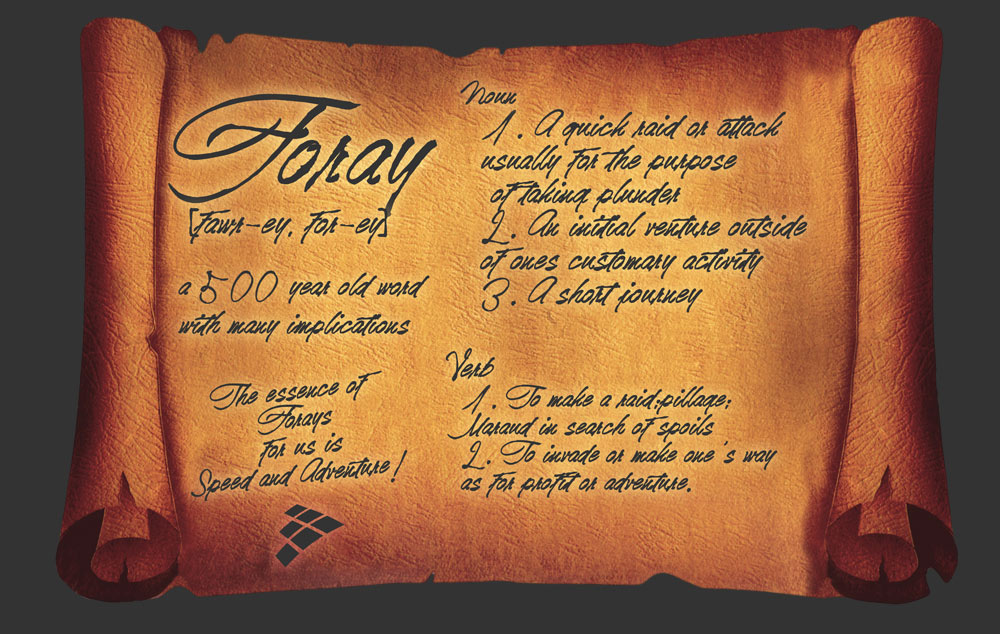 Foray
[fawr-ey, for-ey]
a 500 year old word
with many implications
The essence of
Forays
for us is
Speed and Adventure!
Noun
1. A quick raid or attack
usually for the purpose
of taking plunder
2. An initial venture outside
of ones customary activity
3. A short journey
Verb
1. To make a raid;pillage;
Maraud in search of spoils
2. To invade or make one's way
as for profit or adventure.